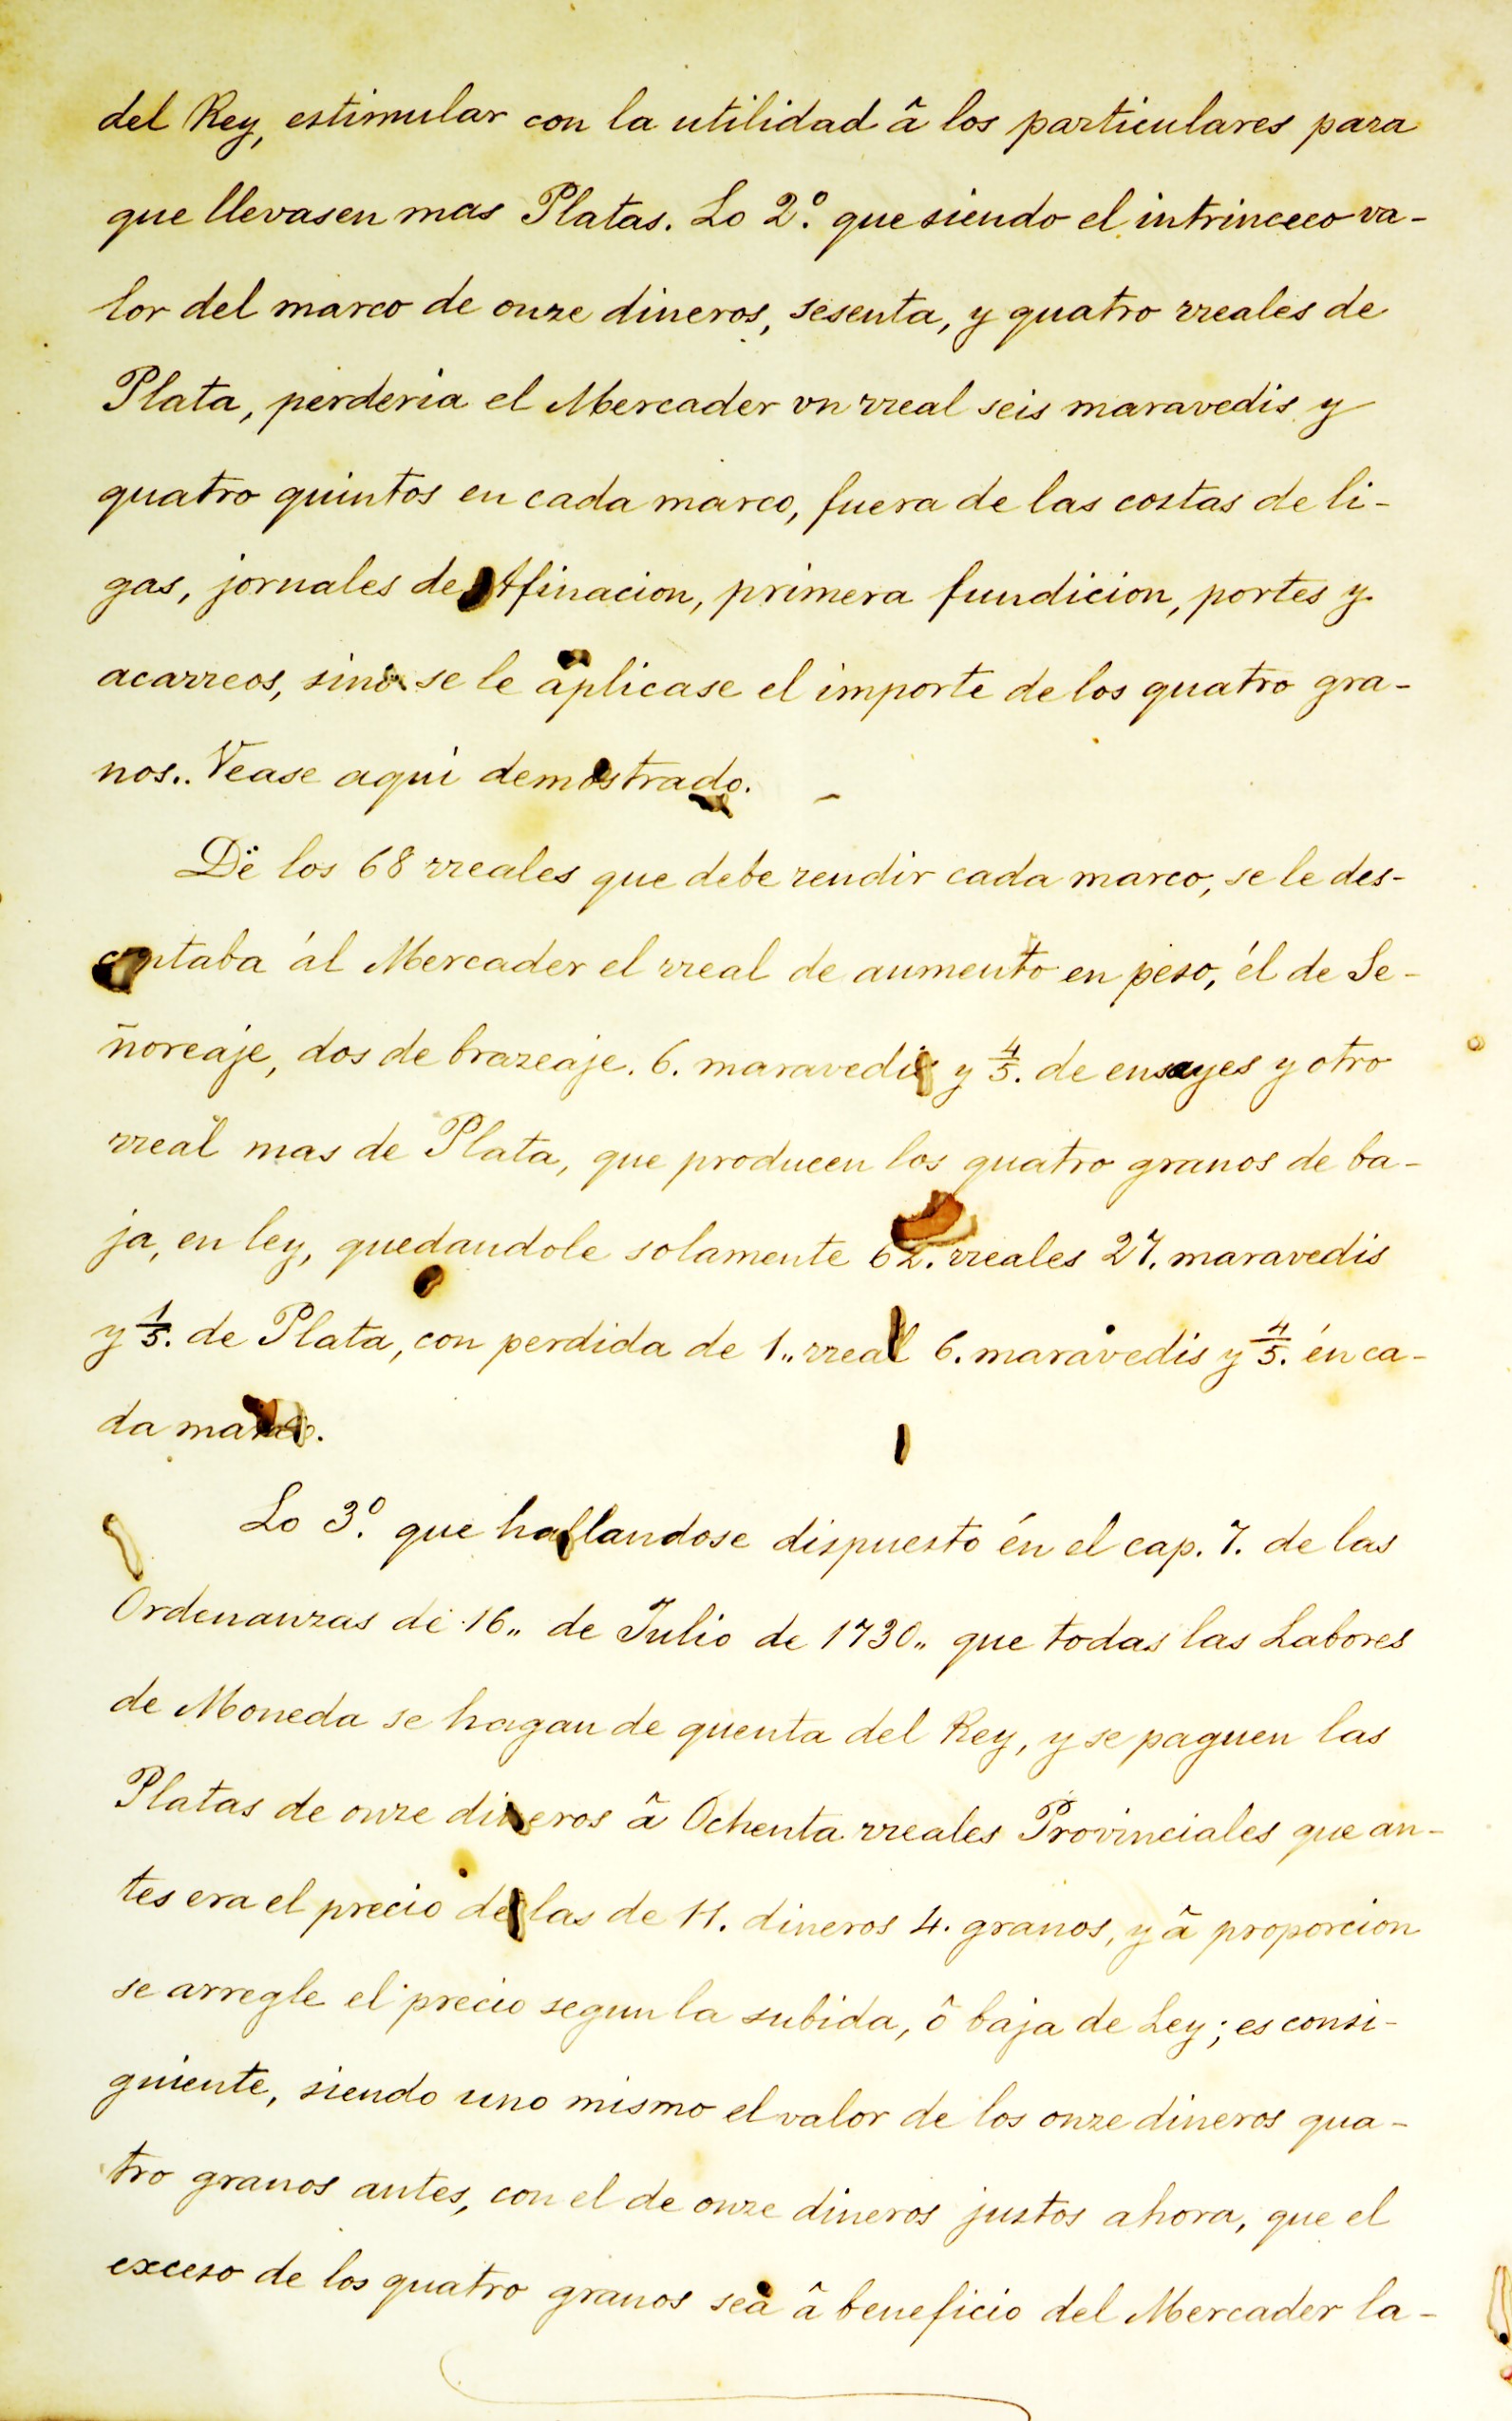 del Rey, estimular con la utilidad â los particulares para
que llevasen mas Platas. Lo 2º. que siendo el intrinceco va-
lor del marco de onze dineros, sesenta, y quatro rreales de
Plata, perderia el Mercader vn rreal seis maravedis y
quatro quintos en cada marco, fuera de las costas de li-
gas, jornales de Afinacion, primera fundicion, portes y
acarreos, sino se le aplicase el importe de los quatro gra-
nos.. Vease aqui demostrado. -
De los 68 rreales que debe rendir cada marco, se le des-
contaba ál Mercader el rreal de aumento en peso, él de Se-
ñoreaje, dos de brazeaje. 6. maravedis y 4/5. de ensayes y otro
rreal mas de Plata, que producen los quatro granos de ba-
ja, en ley, quedandole solamente 62. rreales 27. maravedis
y 1/5. de Plata, con perdida de 1.. rreal 6. maravedis y 4/5. én ca-
da marco.
Lo 3º. que hallandose dispuesto én el cap. 7. de las
Ordenanzas de 16.. de Julio de 1730.. que todas las Labores
de Moneda se hagan de quenta del Rey, y se paguen las
Platas de onze dineros â Ochenta rreales Provinciales que an-
tes era el precio de las de 11. dineros 4. granos, y â proporcion
se arregle el precio segun la subida, ô baja de Ley; es consi-
guiente, siendo uno mismo el valor de los onze dineros qua-
tro granos antes, con el de onze dineros justos ahora, que el
exceso de los quatro granos sea â beneficio del Mercader la-